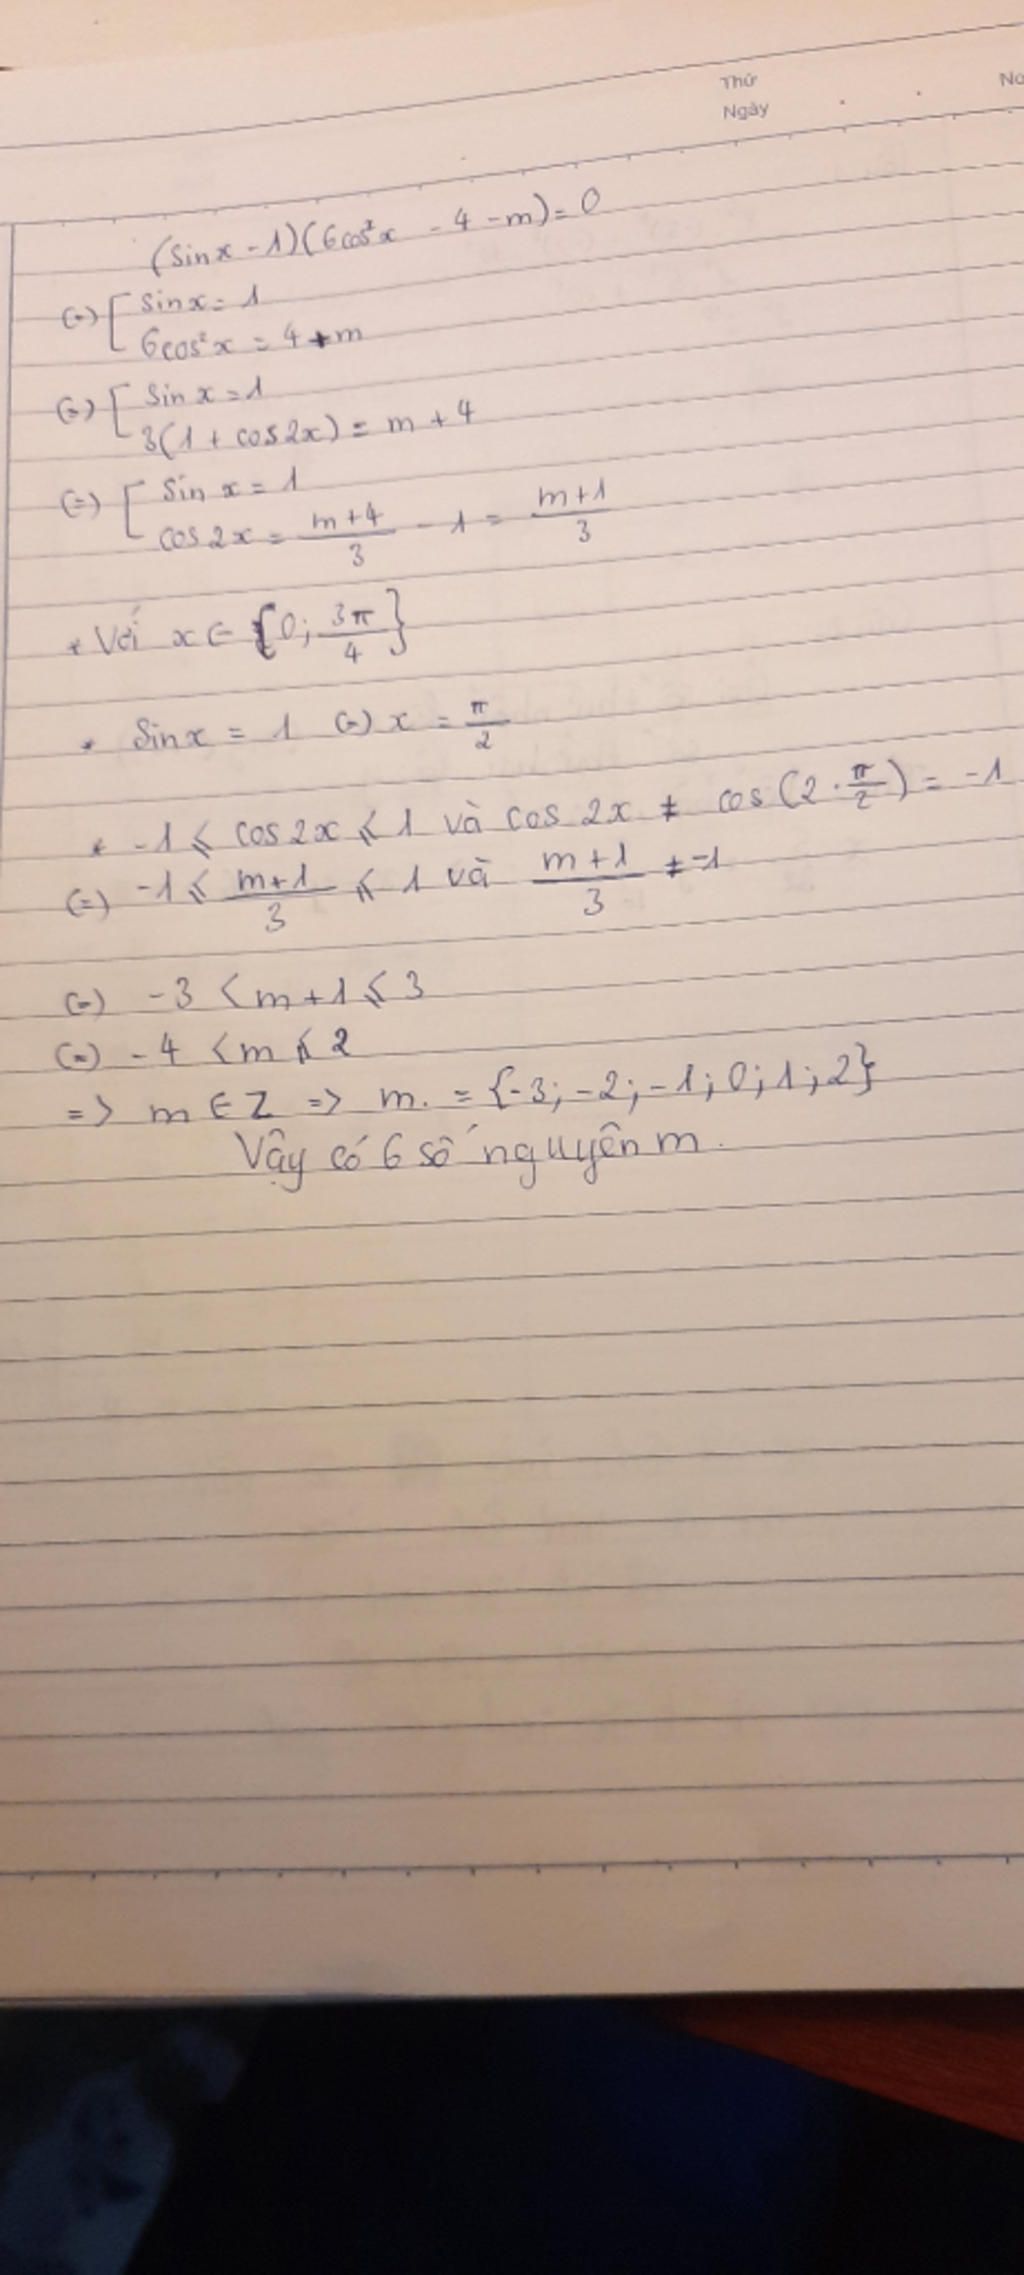 Thứ
Ngày
No
(sinx - 1)(6cos²x - 4 - m) = 0
(=) [ sinx = 1
6cos²x = 4 + m
(=) [ sin x = 1
3(1 + cos2x) = m + 4
(=) [ sin x = 1
cos2x = \frac{m+4}{3} - 1 = \frac{m+1}{3}
* Với x ∈ {0; \frac{3π}{4}}
* Sinx = 1 (=) x = \frac{π}{2}
* -1 ⩽ cos2x ⩽ 1 và cos 2x ≠ cos(2 · \frac{π}{2}) = -1
(=) -1 ⩽ \frac{m+1}{3} ⩽ 1 và \frac{m+1}{3} ≠ -1
(=) -3 < m+1 ⩽ 3
(=) -4 < m ⩽ 2
=> m ∈ Z => m. = {-3; -2; -1; 0; 1; 2}
Vậy có 6 số nguyên m.